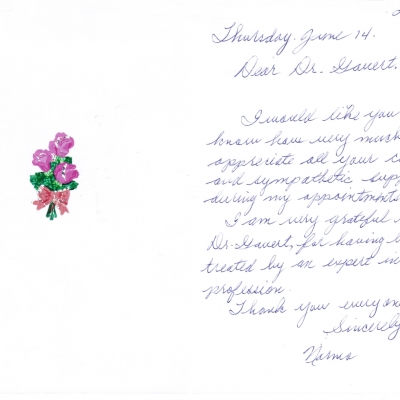 Thursday. June 14.
Dear Dr. Gauert.
I would like you
know how very much
appreciate all your c
and sympathetic supp
during my appointments
I am very grateful
Dr. Gauert, for having b
treated by an expert in
profession.
Thank you everyone
Sincerely
Norma